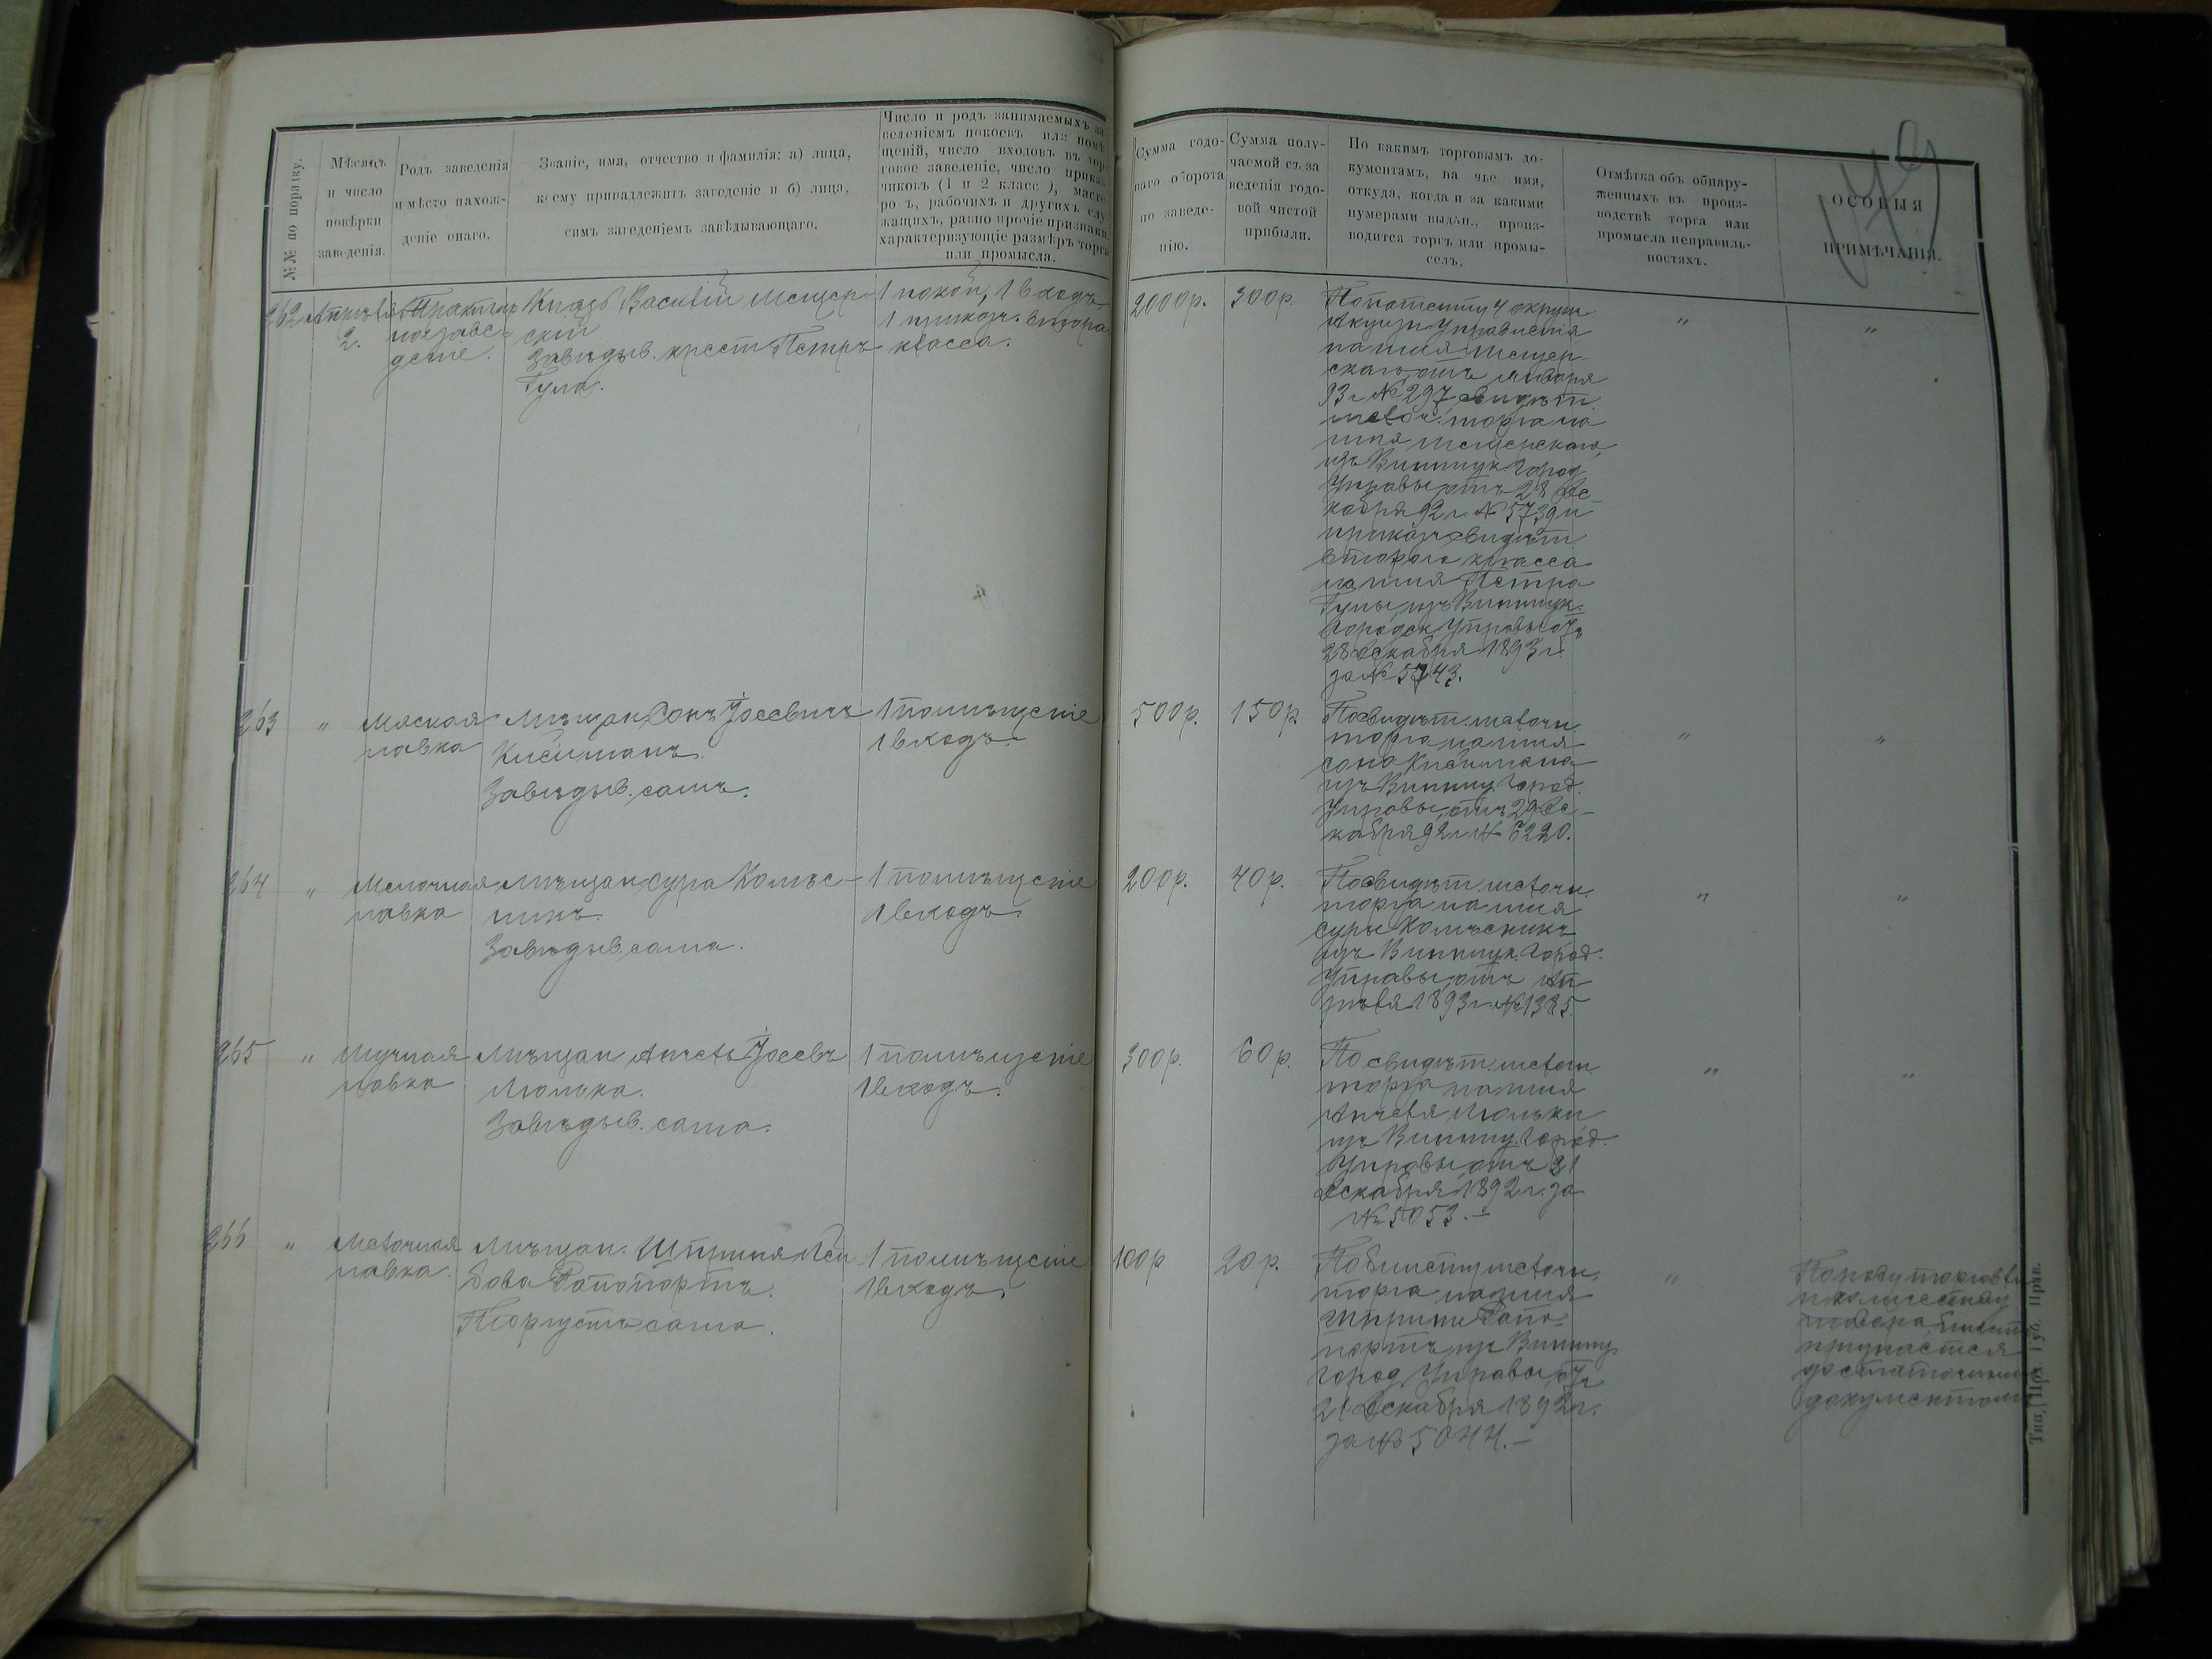 №№ по порядку.
Мѣсяцъ
и число
повѣрки
заведенія.
Родъ заведенія
и мѣсто нахож-
деніе онаго.
Званіе, имя, отчество и фамилія: а) лица,
коему принадлежитъ заведеніе и б) лица,
симъ заведеніемъ завѣдывающаго.
Число и родъ занимаемыхъ за-
веденіемъ покоевъ или помѣ-
щеній, число входовъ въ тор-
говое заведеніе, число приказ-
чиковъ (1 и 2 класс), масте-
ровъ, рабочихъ и другихъ слу-
жащихъ, равно прочіе признаки,
характеризующіе размѣръ торга
или промысла.
Сумма годо-
ваго оборота
по заведе-
нію.
Сумма полу-
чаемой съ за-
веденія годо-
вой чистой
прибыли.
По какимъ торговымъ до-
кументамъ, на чье имя,
откуда, когда и за какими
нумерами выдан., произ-
водится торгъ или промы-
селъ.
Отмѣтка объ обнару-
женныхъ въ произ-
водствѣ торга или
промысла неправиль-
ностяхъ.
ОСОБЫЯ
ПРИМѢЧАНІЯ.
262
Апрѣля
2.
Трактир
ное заве-
деніе.
Князь Василій Мещер-
скій
Завѣдыв. крест. Петръ
Гула.
1 покой, 1 входъ
1 приказч. втора
класса.
2000р.
300р.
По патенту 4 округа
Акцизн. Управленія
на имя Мещер-
скаго отъ января
93 г. № 297, свидѣт.
мелоч. торга на
имя Мещерскаго,
изъ Винницк. Город.
Управы отъ 28 Де-
кабря 92 г. № 5739 и
приказч. свидѣт.
второго класса
на имя Петра
Гулы изъ Винницк.
Городск. Управы отъ
28 декабря 1893 г.
за № 5743.
"
"
263
"
Мясная
лавка
Мѣщан. Сонъ Іосевичъ
Кисилманъ.
Завѣдыв. самъ.
1 помѣщеніе
1 входъ.
500р.
150р
По свидѣт. мелочн.
торга на имя
Сона Кисилмана
изъ Винниц. Город.
Управы, отъ 29 Де-
кабря 92 г. № 6220.
"
"
264
"
Мелочная
лавка
Мѣщан. Сура Колѣс-
никъ.
Завѣдыв. сама.
1 помѣщеніе
1 входъ.
200р.
40р.
По свидѣт. мелочн.
торга на имя
Суры Колѣсникъ
изъ Винницк. Город.
Управы, отъ Ап-
рѣля 1893 г. № 1385.
"
"
265
"
Мучная
лавка
Мѣщан. Анчель Іосевъ
Люлька.
Завѣдыв. сама.
1 помѣщеніе
1 входъ.
300р.
60р.
По свидѣт. мелочн.
торга на имя
Анчеля Люльки
изъ Винниц. Город.
Управы отъ 21
декабря 1892 г. за
№ 5053.-
"
"
266
"
Мелочная
лавка.
Мѣщан. Шприня Лей
бова Рапопортъ.
Торгуетъ сама.
1 помѣщеніе
1 входъ.
100р
20р.
По билету мелочн.
торга на имя
Шприни Рапо-
портъ, изъ Винниц.
Город. Управы, отъ
21 декабря 1892 г.
за № 5044.-
"
По роду торговли
и количеству
товара, билетъ
признается
достаточнымъ
документомъ
Тип. Губ. Прав.